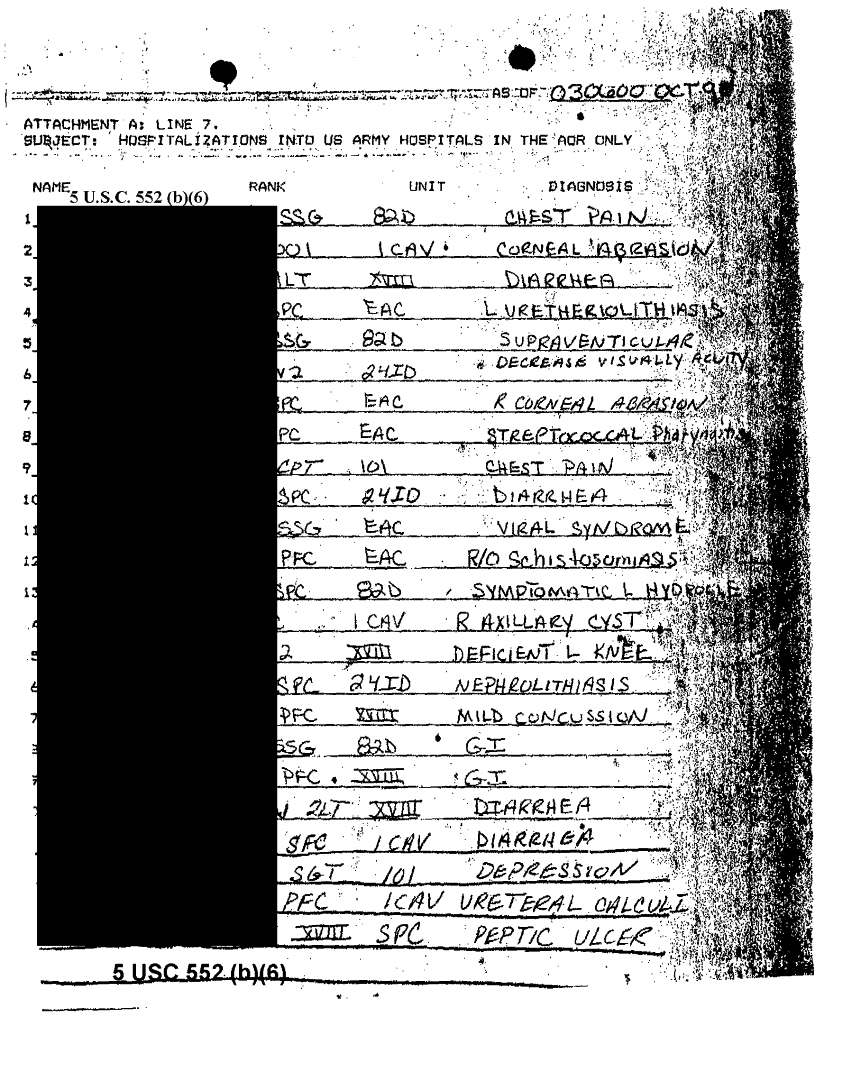 AS OF 030600 OCT 90
ATTACHMENT A: LINE 7.
SUBJECT: HOSPITALIZATIONS INTO US ARMY HOSPITALS IN THE AOR ONLY
NAME RANK UNIT DIAGNOSIS
5 U.S.C. 552 (b)(6)
1 SSG 82D CHEST PAIN
2 001 1CAV CORNEAL ABRASION
3 LT XVIII DIARRHEA
4 PC EAC L URETHERIOLITHIASIS
5 SSG 82D SUPRAVENTICULAR
6 V2 24ID DECREASE VISUALLY ACUITY
7 PC EAC R CORNEAL ABRASION
8 PC EAC STREPTOCOCCAL Pharyngitis
9 CPT 101 CHEST PAIN
10 SPC 24ID DIARRHEA
11 SSG EAC VIRAL SYNDROME
12 PFC EAC R/O Schistosomiasis
13 SPC 82D SYMPTOMATIC L HYDROCELE
1CAV R AXILLARY CYST
5 2 XVIII DEFICIENT L KNEE
6 SPC 24ID NEPHROLITHIASIS
7 PFC XVIII MILD CONCUSSION
SSG 82D GI
PFC XVIII GI
2LT XVIII DIARRHEA
SFC 1CAV DIARRHEA
SGT 101 DEPRESSION
PFC 1CAV URETERAL CALCULI
XVIII SPC PEPTIC ULCER
5 USC 552 (b)(6)